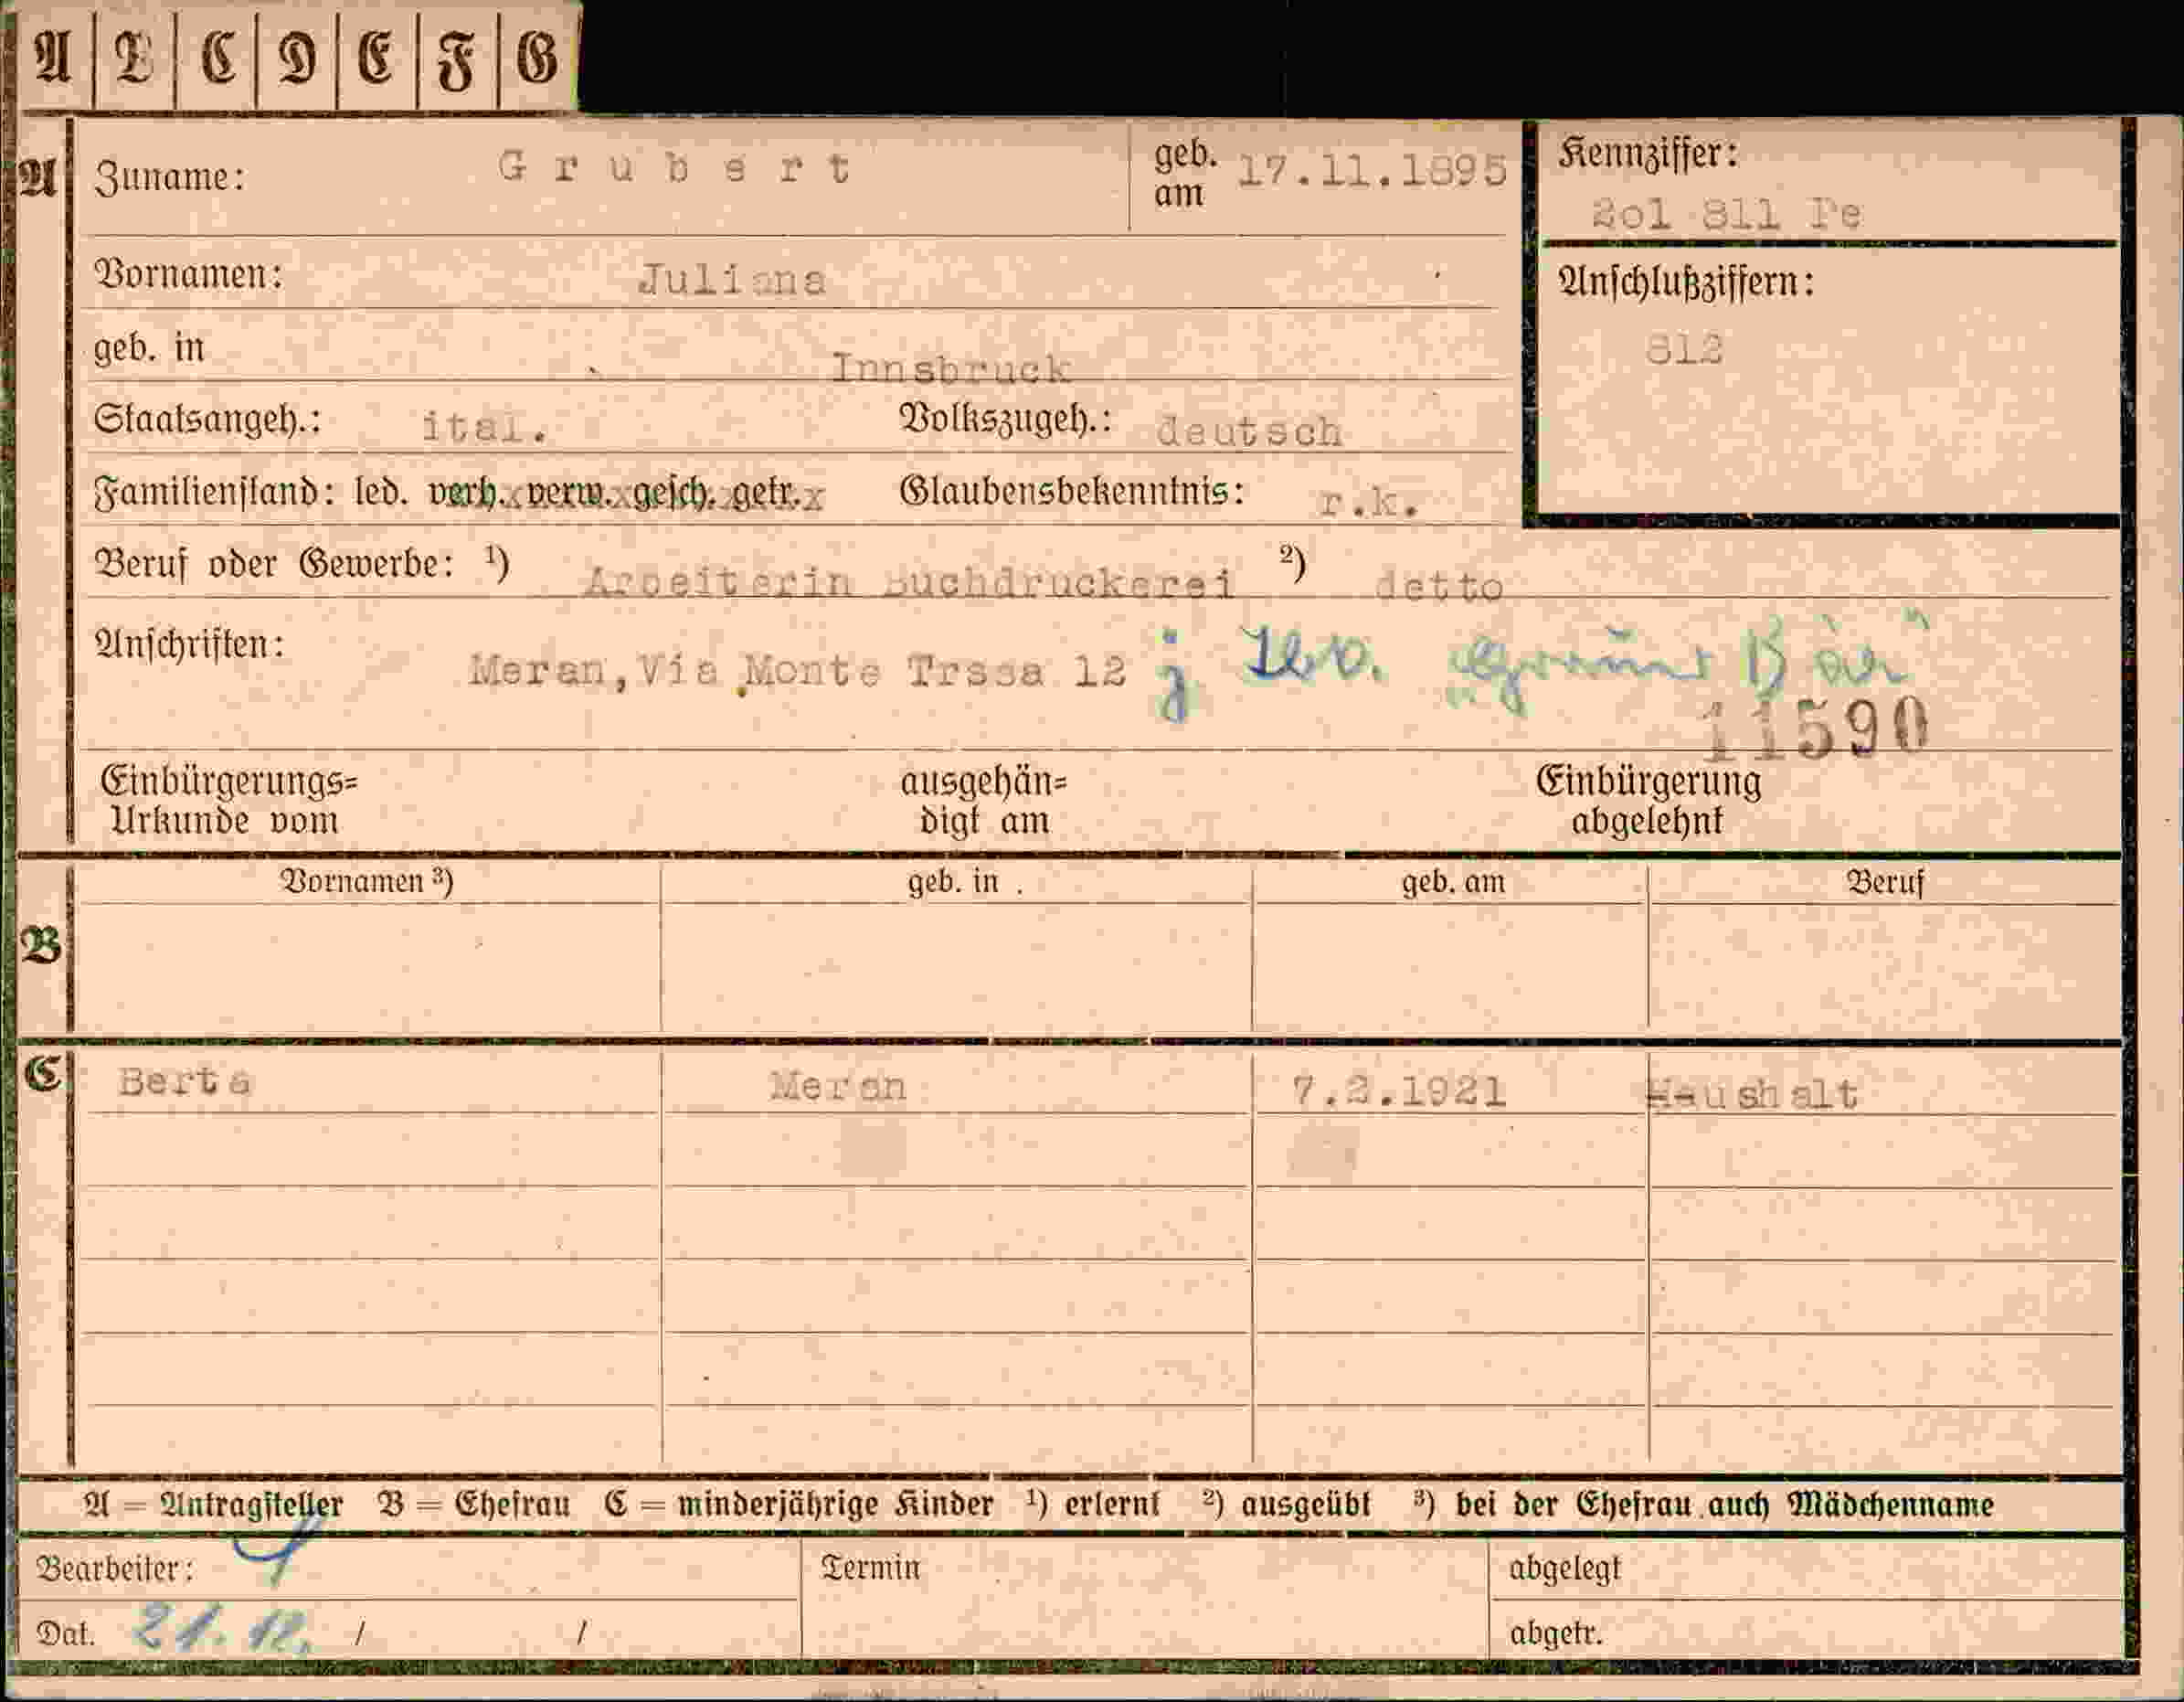 A B C D E F G
A Zuname: Grubert geb. am 17.11.1895 Kennziffer:
2o1 811 Pe
Vornamen: Juliana Anschlußziffern:
geb. in Innsbruck 812
Staatsangeh.: ital. Volkszugeh.: deutsch
Familienstand: led. verh. verw. gesch. getr. Glaubensbekenntnis: r.k.
Beruf oder Gewerbe: 1) Arbeiterin Buchdruckerei 2) detto
Anschriften: Meran,Via Monte Tessa 12 j. "Grauer Bär"
11590
Einbürgerungs= ausgehän= Einbürgerung
Urkunde vom digt am abgelehnt
Vornamen 3) geb. in geb. am Beruf
B
C Berta Meran 7.2.1921 Haushalt
A = Antragsteller B = Ehefrau C = minderjährige Kinder 1) erlernt 2) ausgeübt 3) bei der Ehefrau auch Mädchenname
Bearbeiter: Termin abgelegt
Dat. 21.12. / / abgetr.